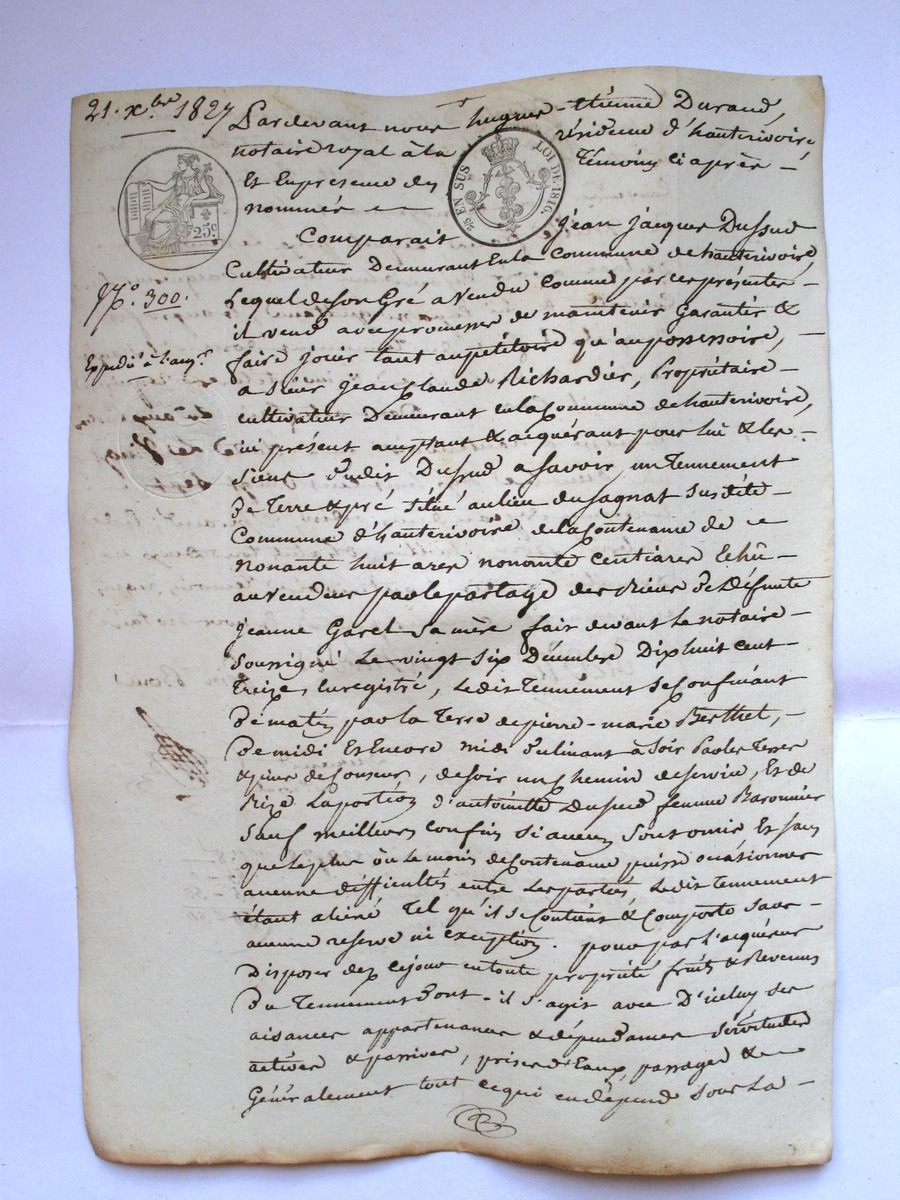 21. Xbre 1827
Pardevant nous hugues-Etienne Durand,
notaire royal à la résidence d'hauterivoire
Et En présence des Témoins ci après –
nommés
25 EN SUS
LOI DE 1816.
25c
Comparait Jean Jacques Dussud
Cultivateur Demeurant En la Commune de hauterivoire,
Lequel de son Gré a vendu comme par ces présentes –
No. 300.
il vend avec promesse de maintenir Garantir &
faire jouir tant au pétitoire qu'au possessoire,
Expedié à l'acqr
a Sieur Jean Claude Richardier, Propriétaire –
cultivateur Demeurant en la Commune de hauterivoire,
ici présent acceptant & acquérant pour lui & les
siens dudit Dussud a savoir, un Tennement
De Terre & pré situé au lieu du sagnat susdite
Commune d'hauterivoire de la Contenance de
nonante huit ares nonante centiares Echû –
au vendeur par le partage des Biens De Défunte
Jeanne Garel sa mère fait devant Le notaire
soussigné Le vingt six Décembre Dix huit cent
Treize, Enregistré, Ledit Tennement se Confinant
De matin par la Terre de pierre-marie Berthet, –
De midi Et Encore midi Déclinant à Soir Par les Terres
de soir un Chemin de service, Et de
Bize La portion d'antoinette Dussud femme Baronnier
Sauf meilleurs confins si aucuns sont omis Et sans
que le plus ou le moins de Contenance puisse occasionner
aucune difficultés entre Les parties, Ledit Tennement
étant aliéné Tel qu'il se Contient & Comporte sans –
aucune réserve ni exception. pour par L'acquéreur
Disposer dez ce jour en toute propriété fruits & Revenus
Du Tennement Dont-il s'agit avec D'icelui ses
aisances appartenances & dépendances servitudes
actives & passives, prises d'Eaux, passages &
Généralement tout ce qui en dépend sous La –